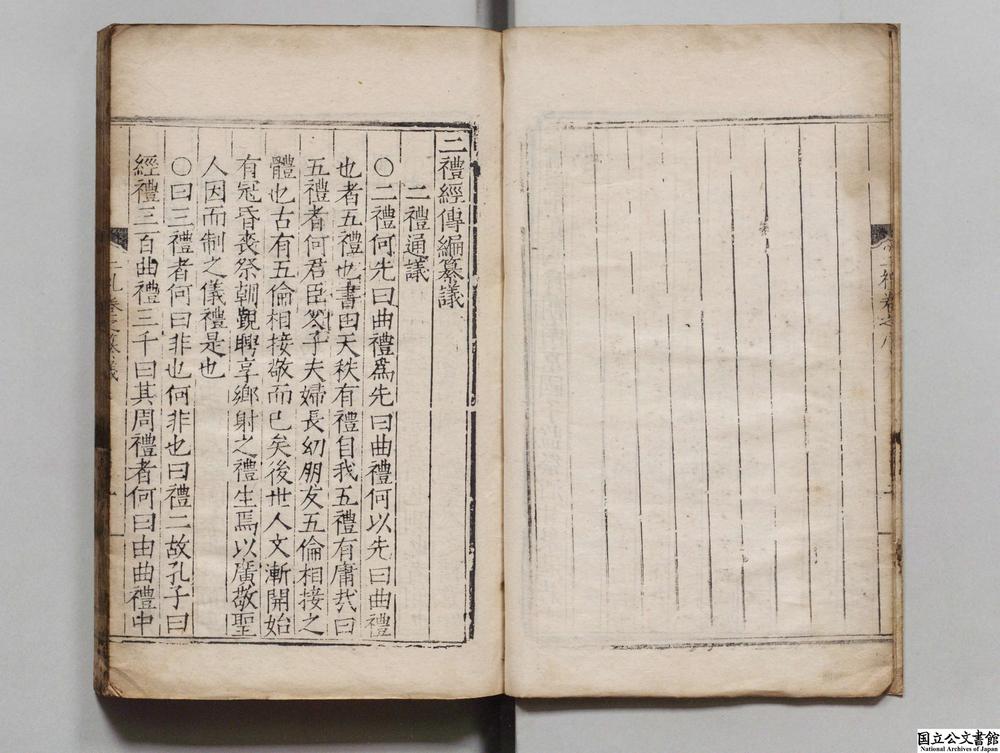 二禮經傳編纂議
二禮通議
〇二禮何先曰曲禮爲先曰曲禮何以先曰曲禮
也者五禮也書曰天秩有禮自我五禮有庸哉曰
五禮者何君臣父子夫婦長幼朋友五倫相接之
體也古有五倫相接敬而已矣後世人文漸開始
有冠昏喪祭朝覲聘享鄉射之禮生焉以廣敬聖
人因而制之儀禮是也
〇曰三禮者何曰非也何非也曰禮二故孔子曰
經禮三百曲禮三千曰其周禮者何曰由曲禮中
国立公文書館
National Archives of Japan